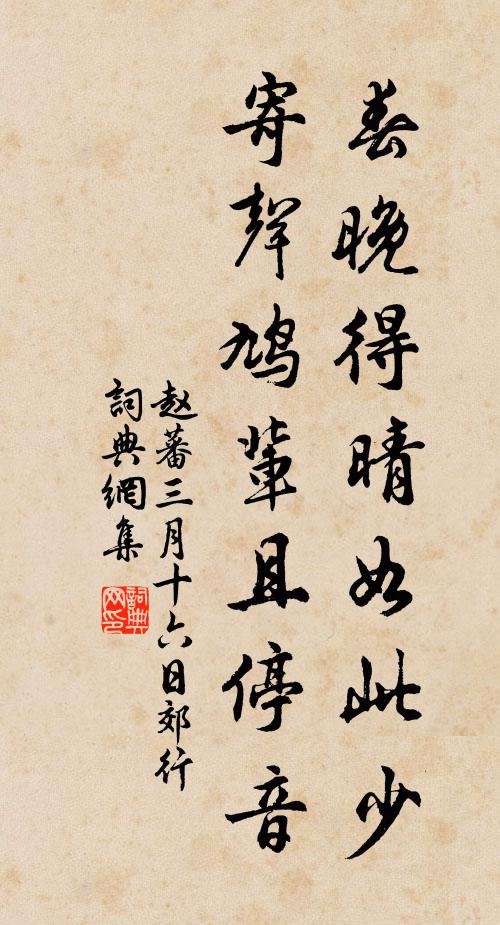 春晚得晴如此少
寄聲鳩輩且停音
赵蕃三月十六日郊行
詞典網集
詞典
网印